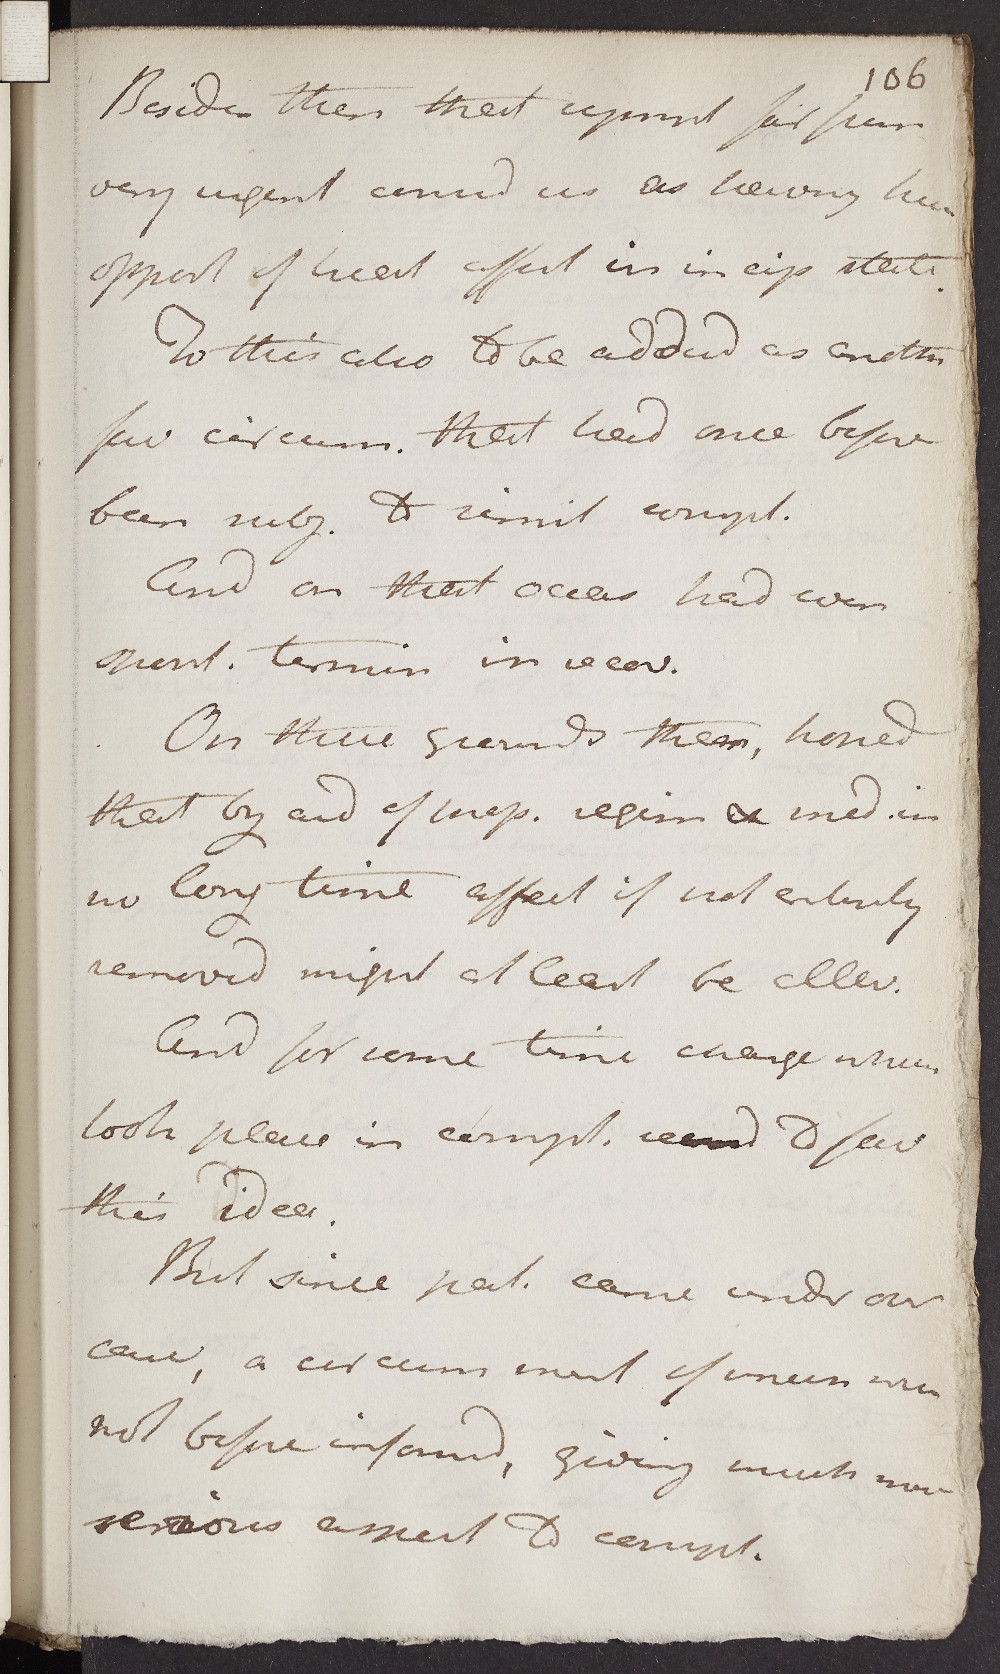 106
Besides then that sympt so far from
very urgent consid us as having been
opport of treat affect in incip state.
To this also to be added as another
fav circum. that had once before
been subj. to simil compl.
And on that occas had even
spont. termin in recov.
On these grounds then, hoped
that by aid of prop. regim & med. in
no long time affect if not entirely
removed might at least be allev.
And for some time change which
took place in compl. seemd to fav
this idea.
But since pat. came under our
care, a circum most of which were
not before informd, giving much more
serious aspect to compl.